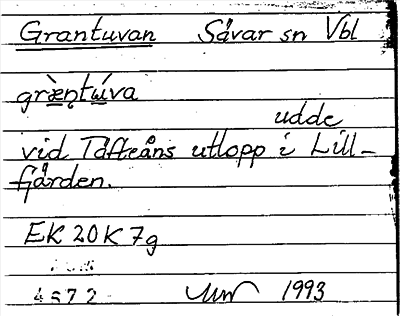 Grantuvan Sävar sn Vbl
græ̀ntúva
udde
vid Täfteåns utlopp i Lill-
fjärden.
EK 20K 7g
4572 1993